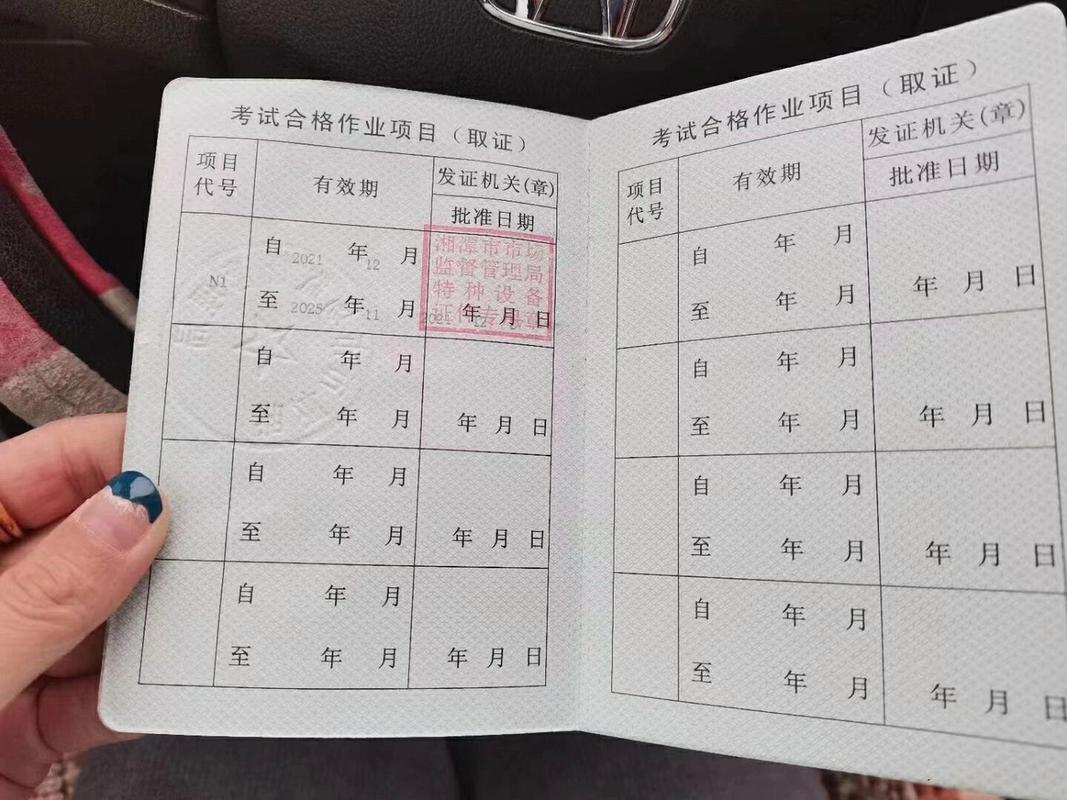 考试合格作业项目（取证）
项目代号 有效期 发证机关(章)
批准日期
N1 自 2021 年 12 月
至 2025 年 11 月
湘潭市市场
监督管理局
特种设备
证件专用章
年 月 日
自 年 月
至 年 月 年 月 日
自 年 月
至 年 月 年 月 日
自 年 月
至 年 月 年 月 日
考试合格作业项目（取证）
项目代号 有效期 发证机关(章)
批准日期
自 年 月
至 年 月 年 月 日
自 年 月
至 年 月 年 月 日
自 年 月
至 年 月 年 月 日
自 年 月
至 年 月 年 月 日